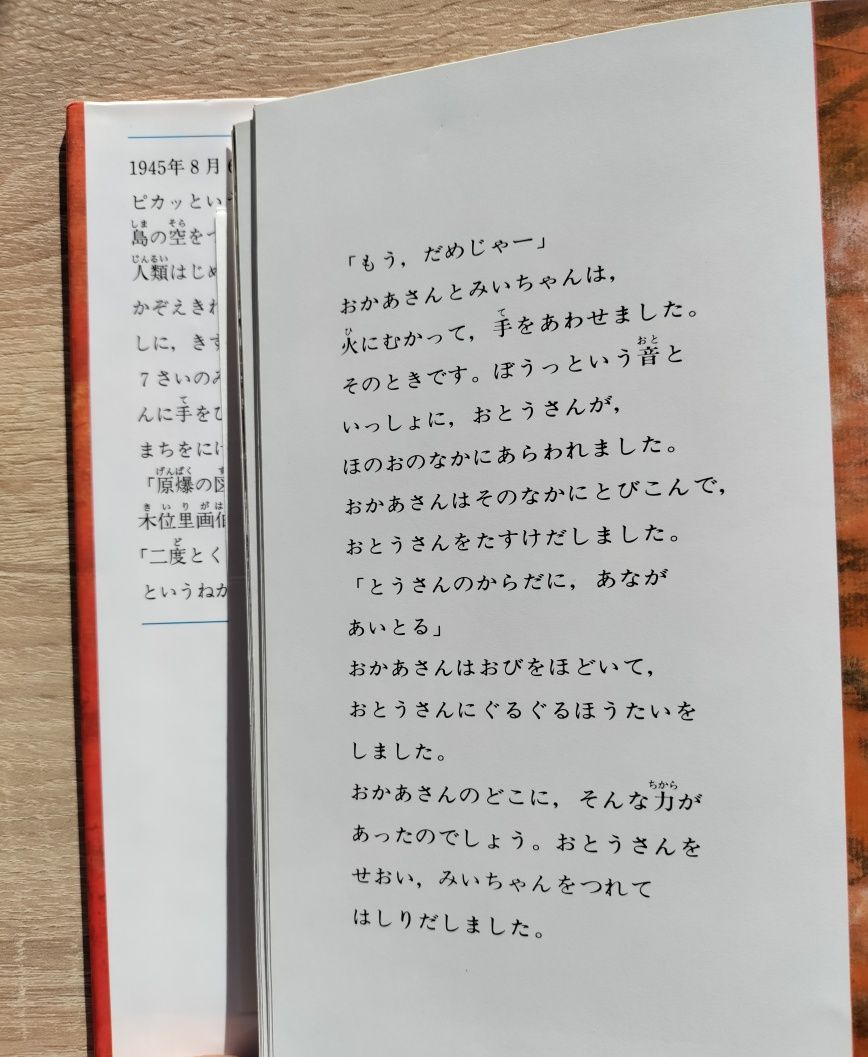 1945年8月
ピカッとい
島の空を
人類はじめ
かぞえきれ
しに，きず
7さいのみ
んに手をひ
まちをにげ
「原爆の図
木位里画伯
「二度とく
というねが
「もう，だめじゃー」
おかあさんとみいちゃんは，
火にむかって，手をあわせました。
そのときです。ぼうっという音と
いっしょに，おとうさんが，
ほのおのなかにあらわれました。
おかあさんはそのなかにとびこんで，
おとうさんをたすけだしました。
「とうさんのからだに，あなが
あいとる」
おかあさんはおびをほどいて，
おとうさんにぐるぐるほうたいを
しました。
おかあさんのどこに，そんな力が
あったのでしょう。おとうさんを
せおい，みいちゃんをつれて
はしりだしました。